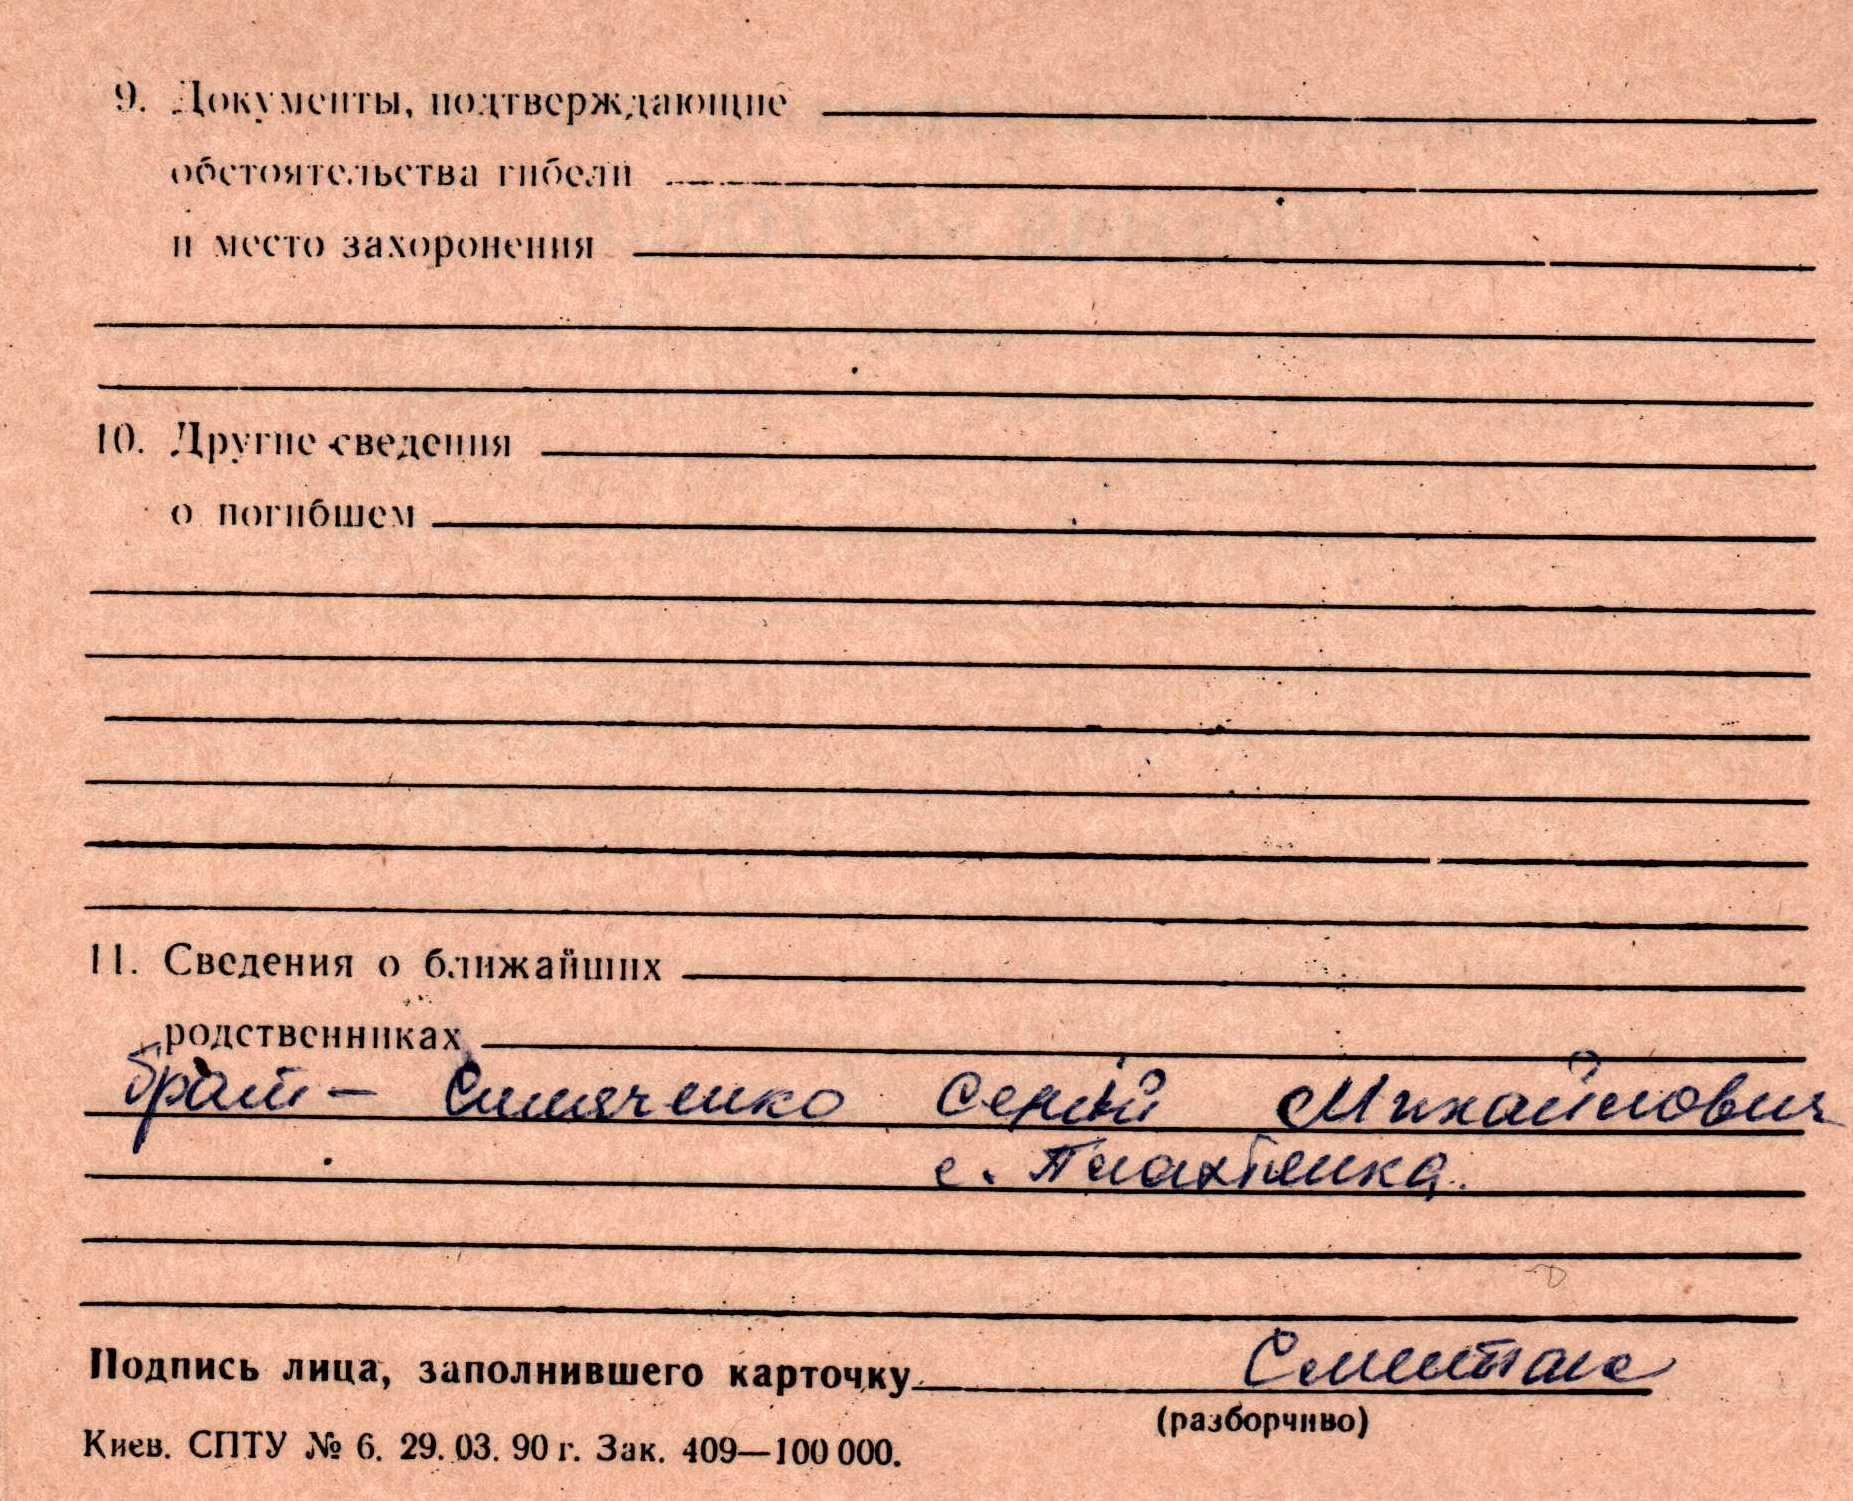 9. Документы, подтверждающие
обстоятельства гибели
и место захоронения
10. Другие сведения
о погибшем
11. Сведения о ближайших
родственниках
брат – Симяченко Сергій Михайлович
с. Плахтянка.
Подпись лица, заполнившего карточку
(разборчиво)
Киев. СПТУ № 6. 29. 03. 90 г. Зак. 409—100 000.